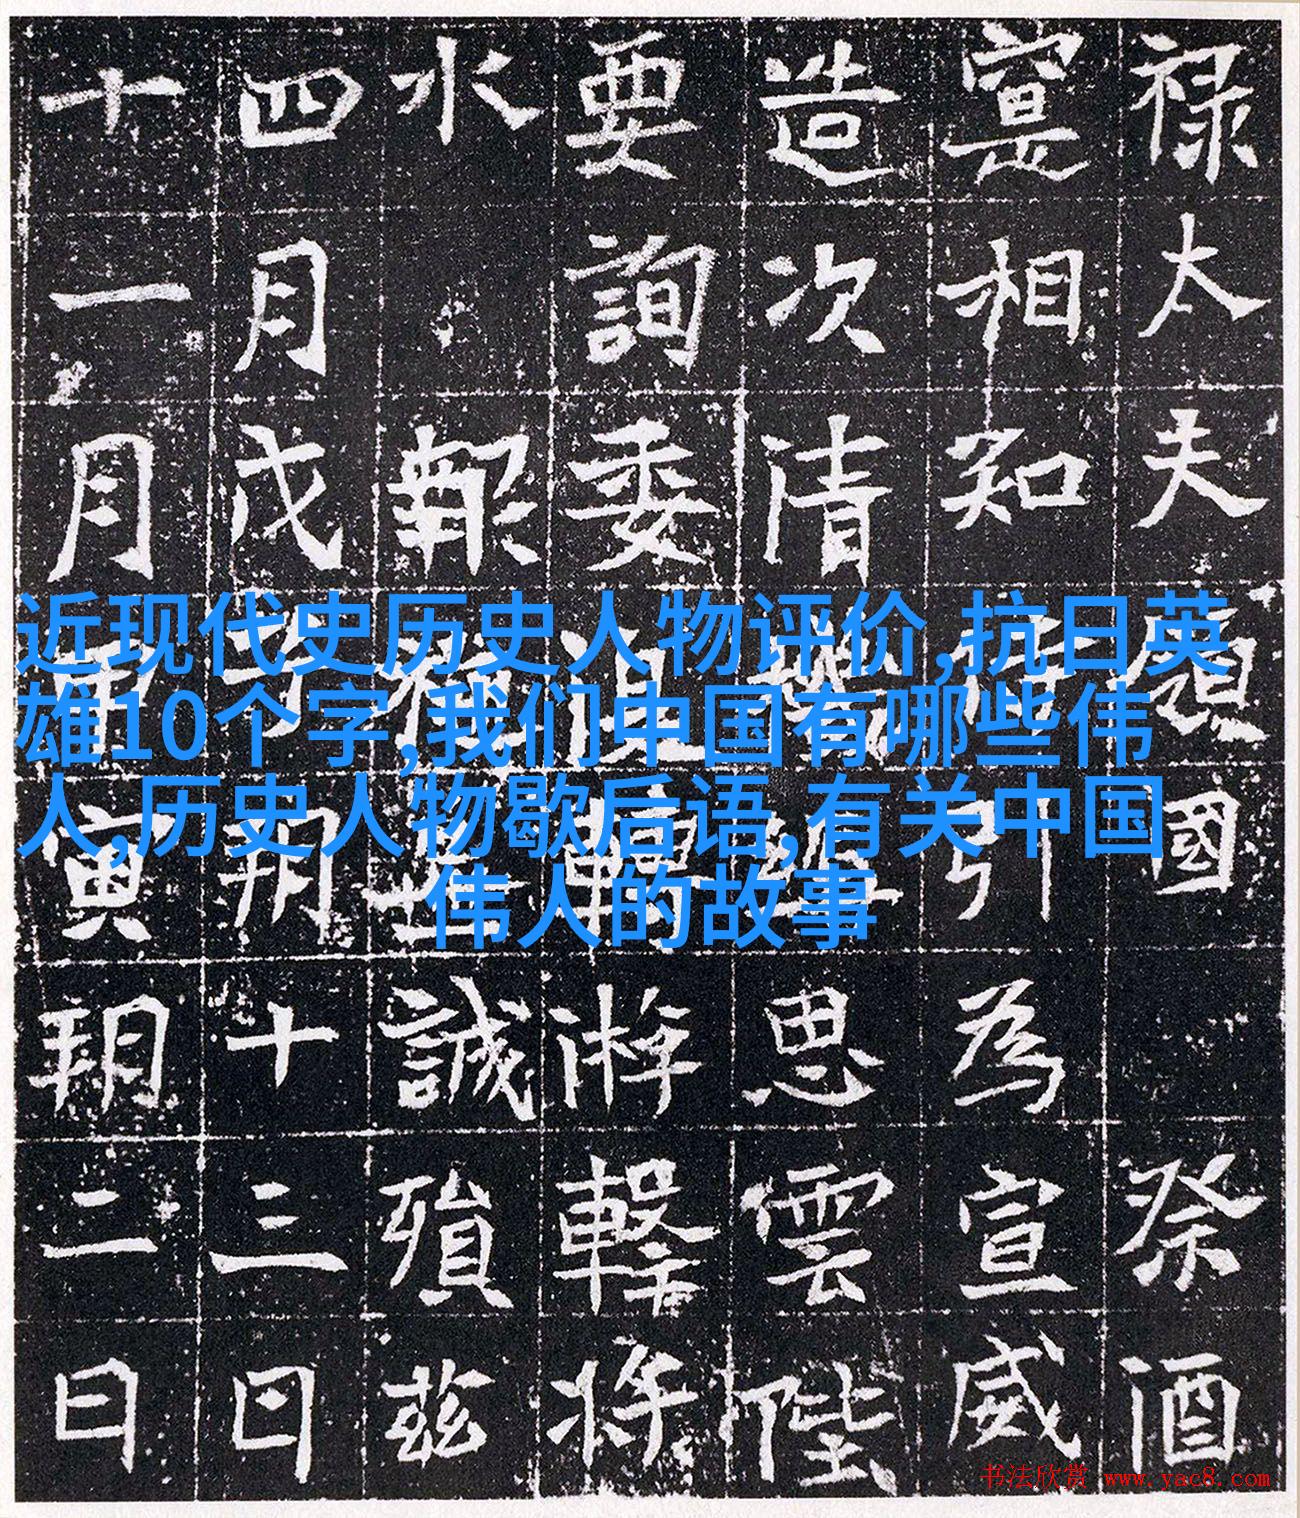 禄太夫領國祭酒
寔相知引為宣威
造次清思雲陛
要詢委游擊将
水報誠殞茲
四月戊朔十三日
十一月寅朔二日
近现代史历史人物评价,抗日英
雄10个字,我们中国有哪些伟
人,历史人物歇后语,有关中国
伟人的故事
书法欣赏 www.yac8.com